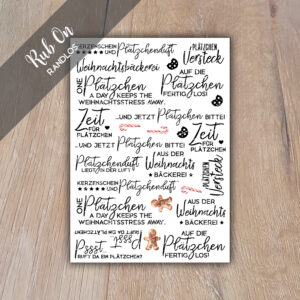 Rub On
RANDLOS
KERZENSCHEIN
UND Plätzchenduft
Weihnachtsbäckerei
PLÄTZCHEN
Versteck
ONE Plätzchen
A DAY KEEPS THE
WEIHNACHTSSTRESS AWAY.
AUF DIE
Plätzchen
FERTIG LOS!
Zeit
FÜR
PLÄTZCHEN
...UND JETZT PLÄTZCHEN BITTE!
Zeit
FÜR
PLÄTZCHEN
...UND JETZT PLÄTZCHEN BITTE!
Plätzchenduft
LIEGT IN DER LUFT
AUS DER
Weihnachts
BÄCKEREI
KERZENSCHEIN
UND Plätzchenduft
ONE Plätzchen
A DAY KEEPS THE
WEIHNACHTSSTRESS AWAY.
AUS DER
Weihnachts
BÄCKEREI
Pssst
RUFT DA EIN PLÄTZCHEN?
Pssst
RUFT DA EIN PLÄTZCHEN?
AUF DIE
Plätzchen
FERTIG LOS!